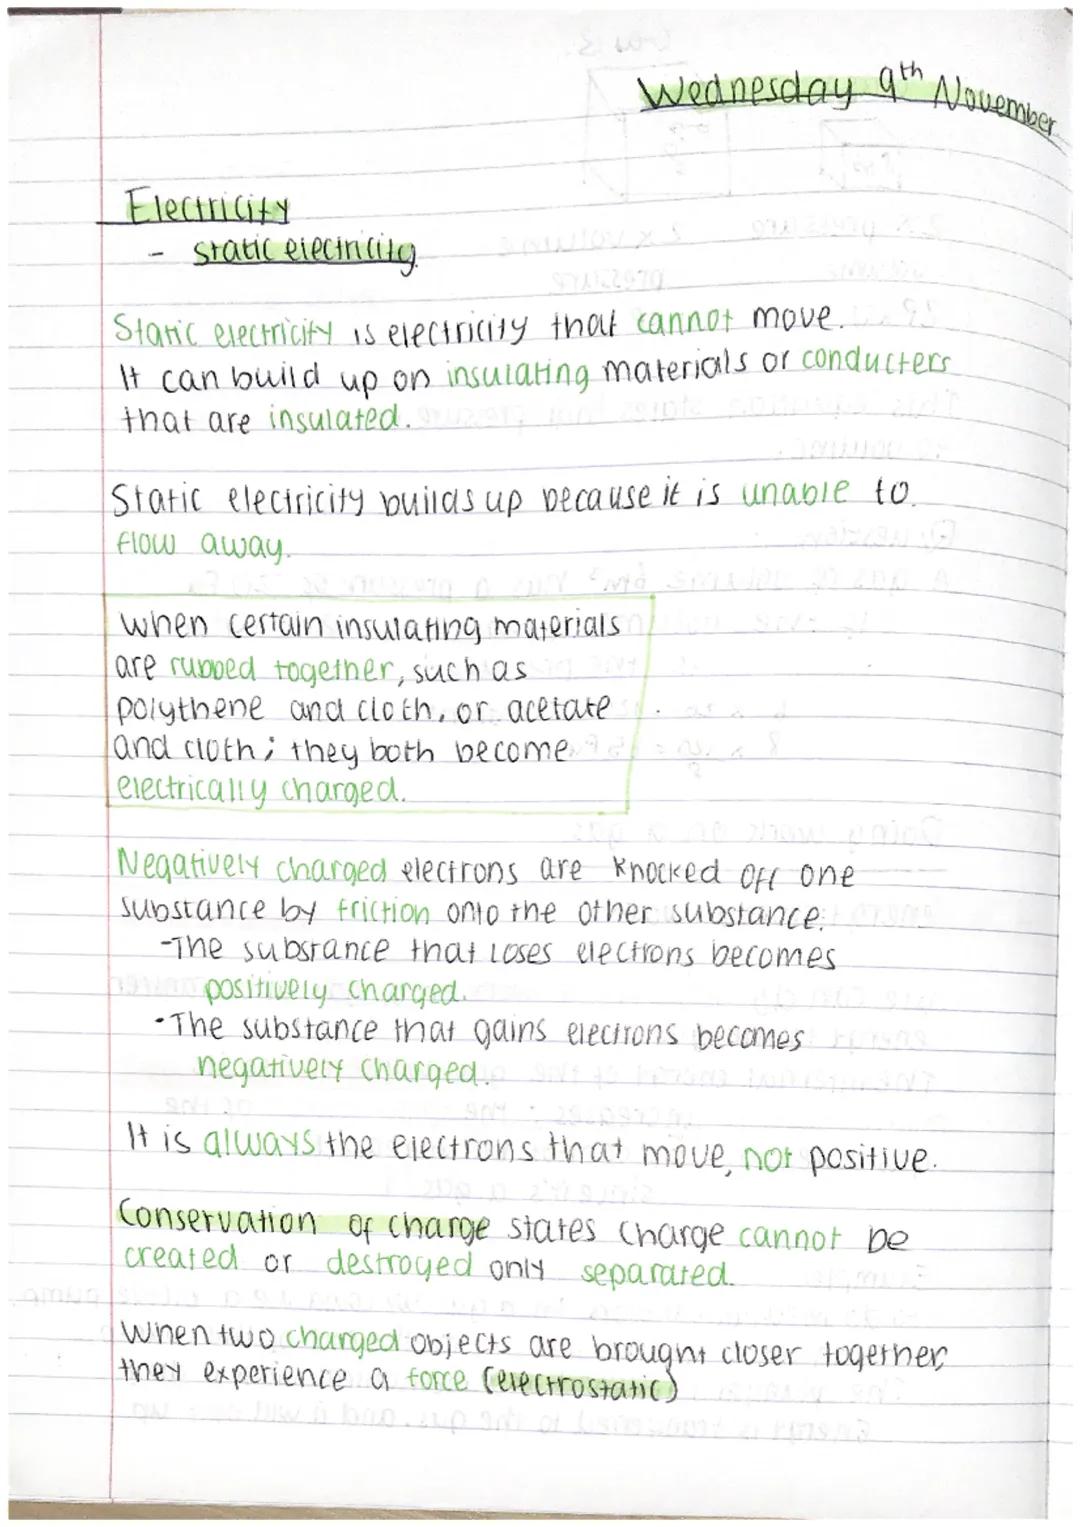 Wednesday 9th November
Electricity
- static electricity
Static electricity is electricity that cannot move.
It can build up on insulating materials or conducters
that are insulated.
Static electricity builds up because it is unable to
flow away.
when certain insulating materials
are rubbed together, such as
polythene and cloth, or acetate
and cloth; they both become
electrically charged.
Negatively charged electrons are knocked off one
substance by friction onto the other substance.
-The substance that loses electrons becomes
positively charged.
·The substance that gains electrons becomes
negatively charged.
It is always the electrons that move, not positive.
Conservation of charge states charge cannot be
created or destroyed only separated.
When two charged objects are brought closer together,
they experience a force (electrostatic)